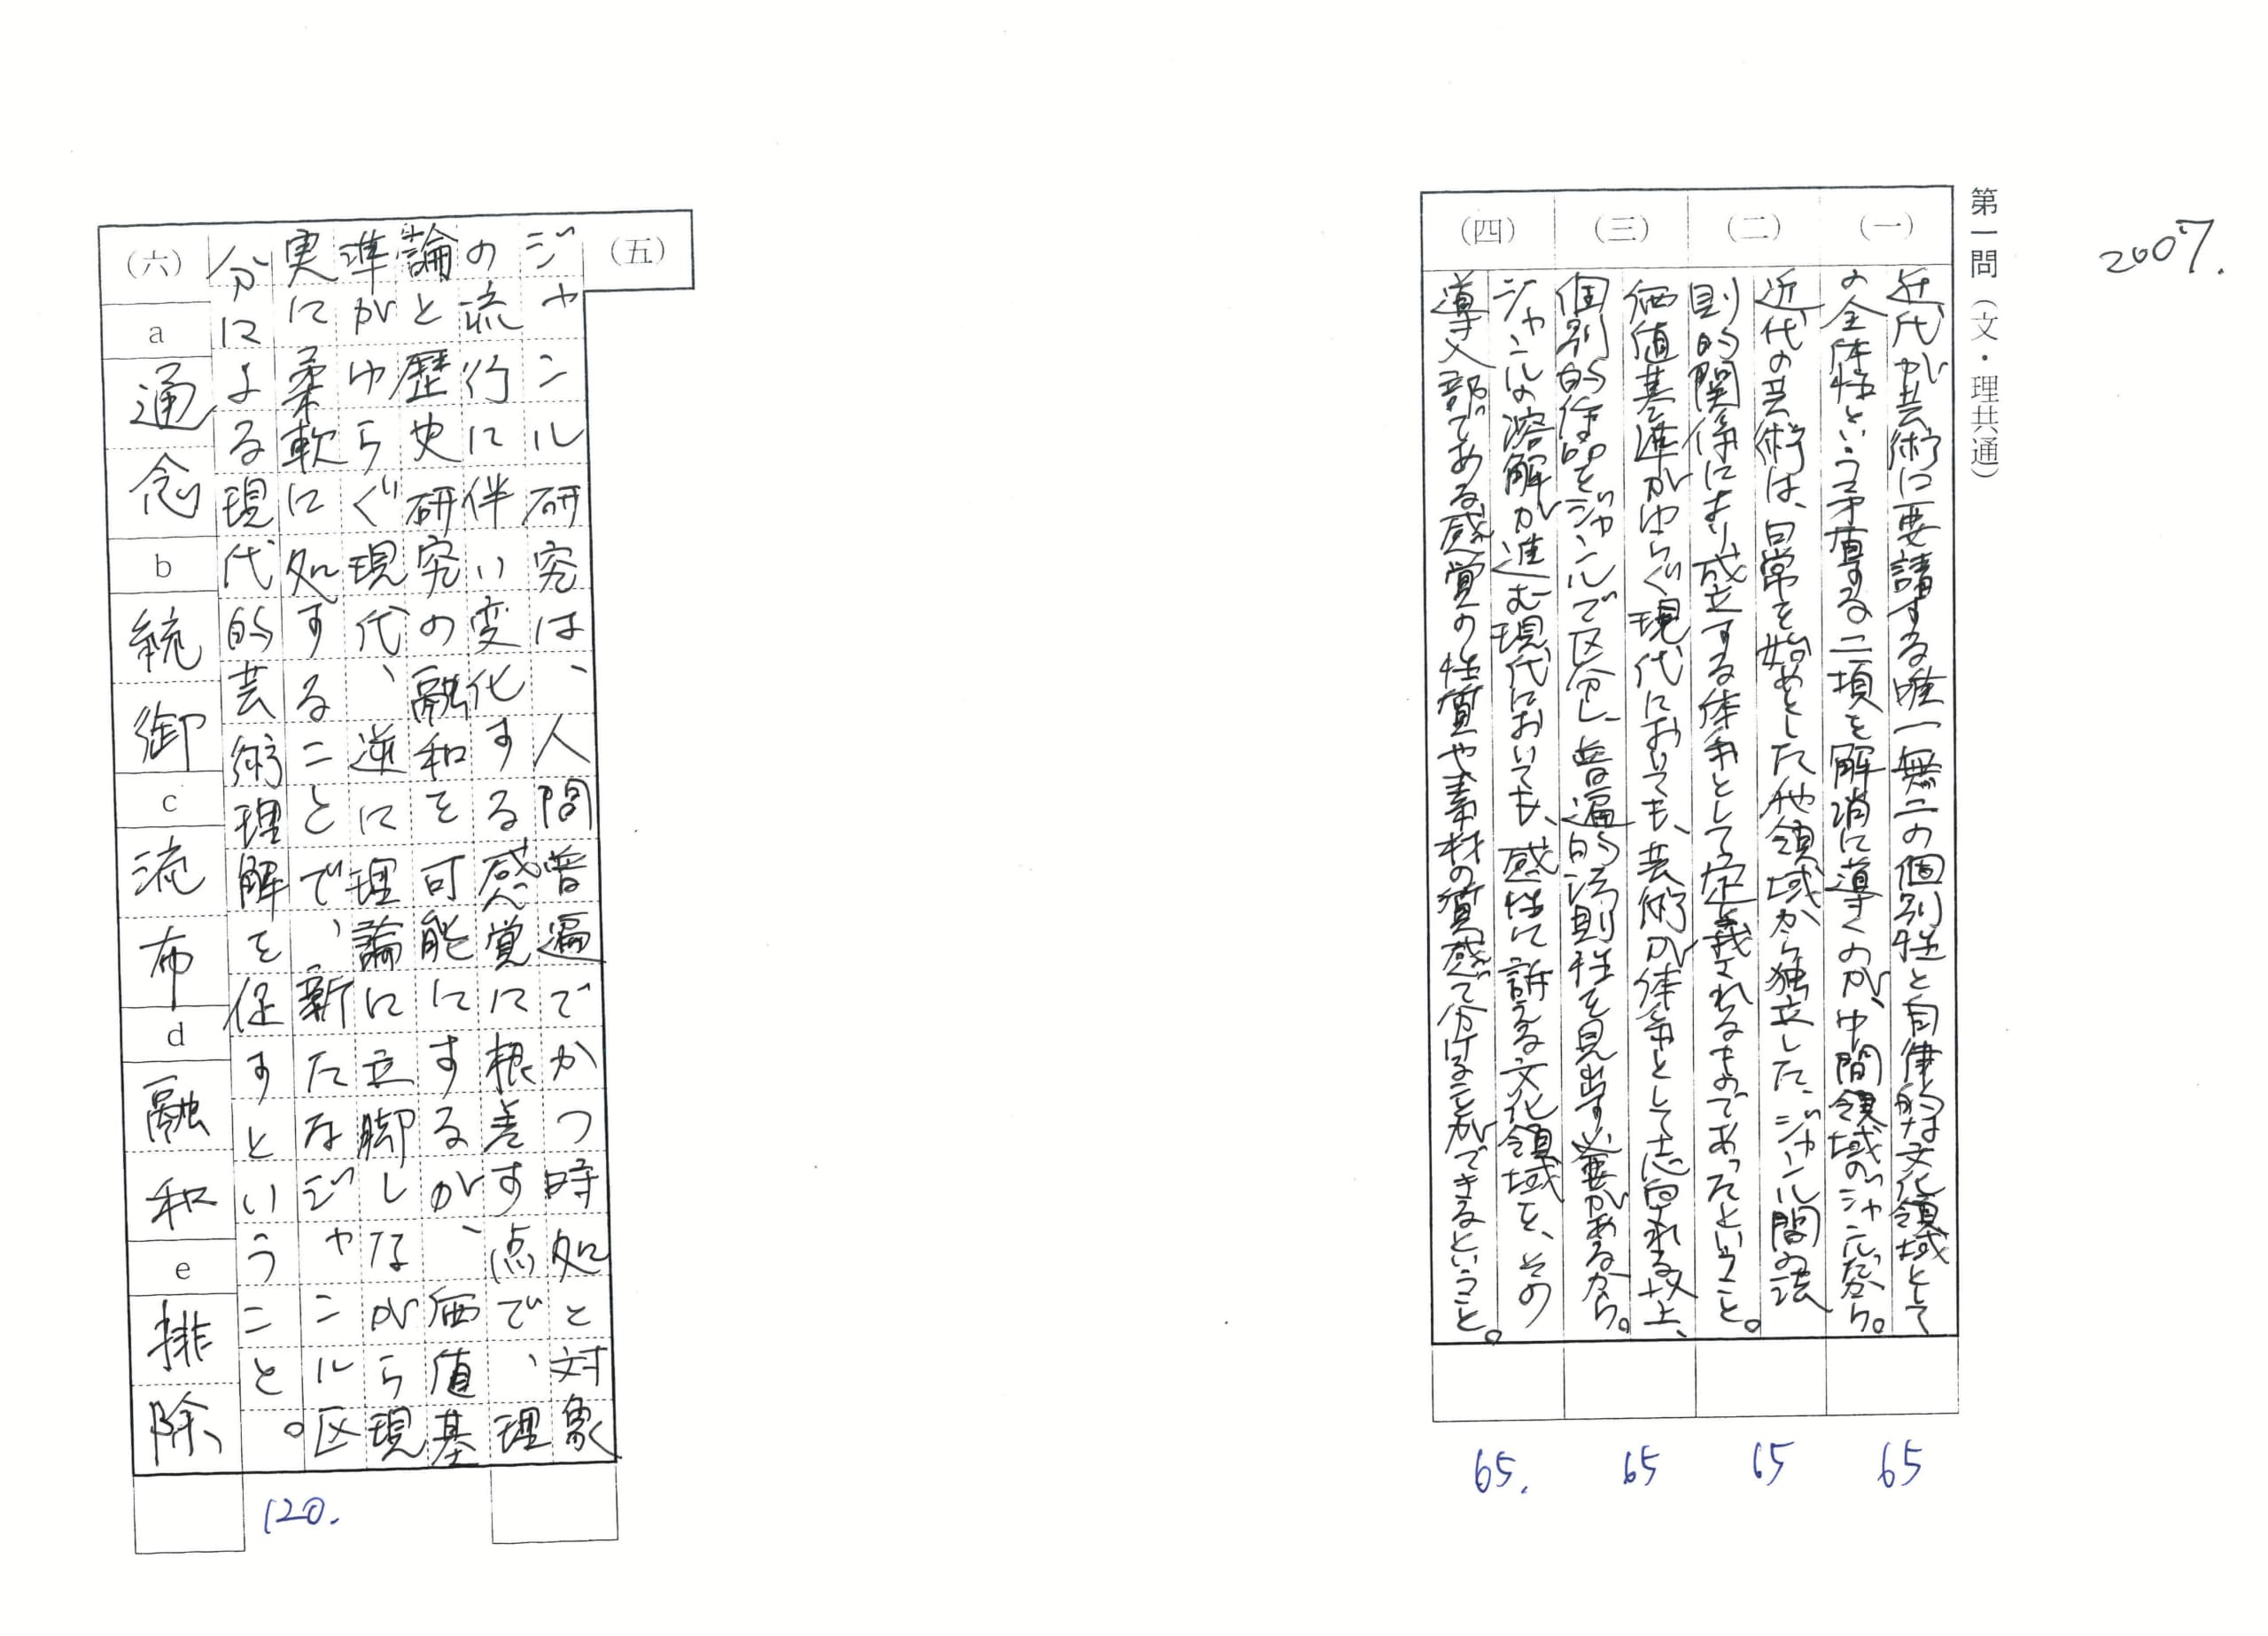 2007.
第一問（文・理共通）
（一）
近代が芸術に要請する唯一無二の個別性と自律的な文化領域として
の全体性という矛盾する二項を解消に導くのが、中間領域のジャンルだから。
（二）
近代の芸術は、日常を始めとした他領域から独立した、ジャンル間の法
則的関係により成立する体系として定義されるものであったということ。
（三）
価値基準がゆらぐ現代においても、芸術が体系として志向される以上、
個別的作品をジャンルで区分し、普遍的法則性を見出す必要があるから。
（四）
ジャンルの溶解が進む現代においても、感性に訴える文化領域を、その
導入部である感覚の性質や素材の質感で分けることができるということ。
65
65
65
65.
（五）
ジャンル研究は、人間普遍でかつ時処と対象
の流行に伴い変化する感覚に根差す点で、理
論と歴史研究の融和を可能にするが、価値基
準がゆらぐ現代、逆に理論に立脚しながら現
実に柔軟に処することで、新たなジャンル区
分による現代的芸術理解を促すということ。
120.
（六）
a
通念
b
統御
c
流布
d
融和
e
排除